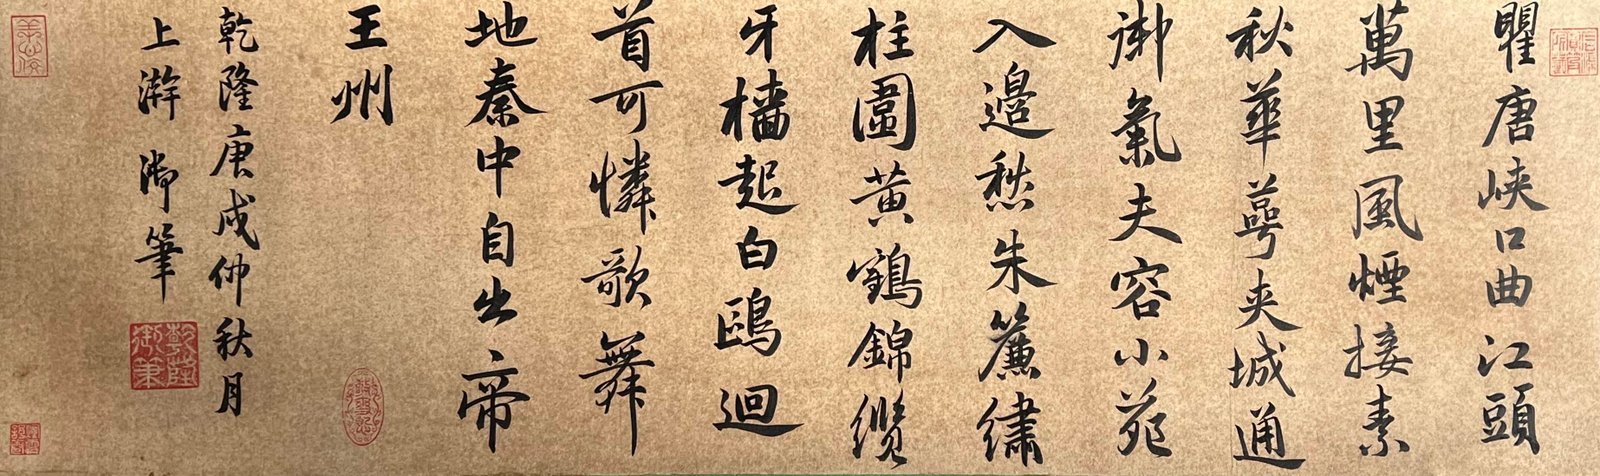 瞿唐峽口曲江頭
萬里風煙接素
秋華萼夾城通
御氣夫容小苑
入邊愁朱簾繡
柱圍黃鶴錦纜
牙檣起白鷗迴
首可憐歌舞
地秦中自出帝
王州
乾隆庚戌仲秋月
上澣 御筆
乾隆御筆